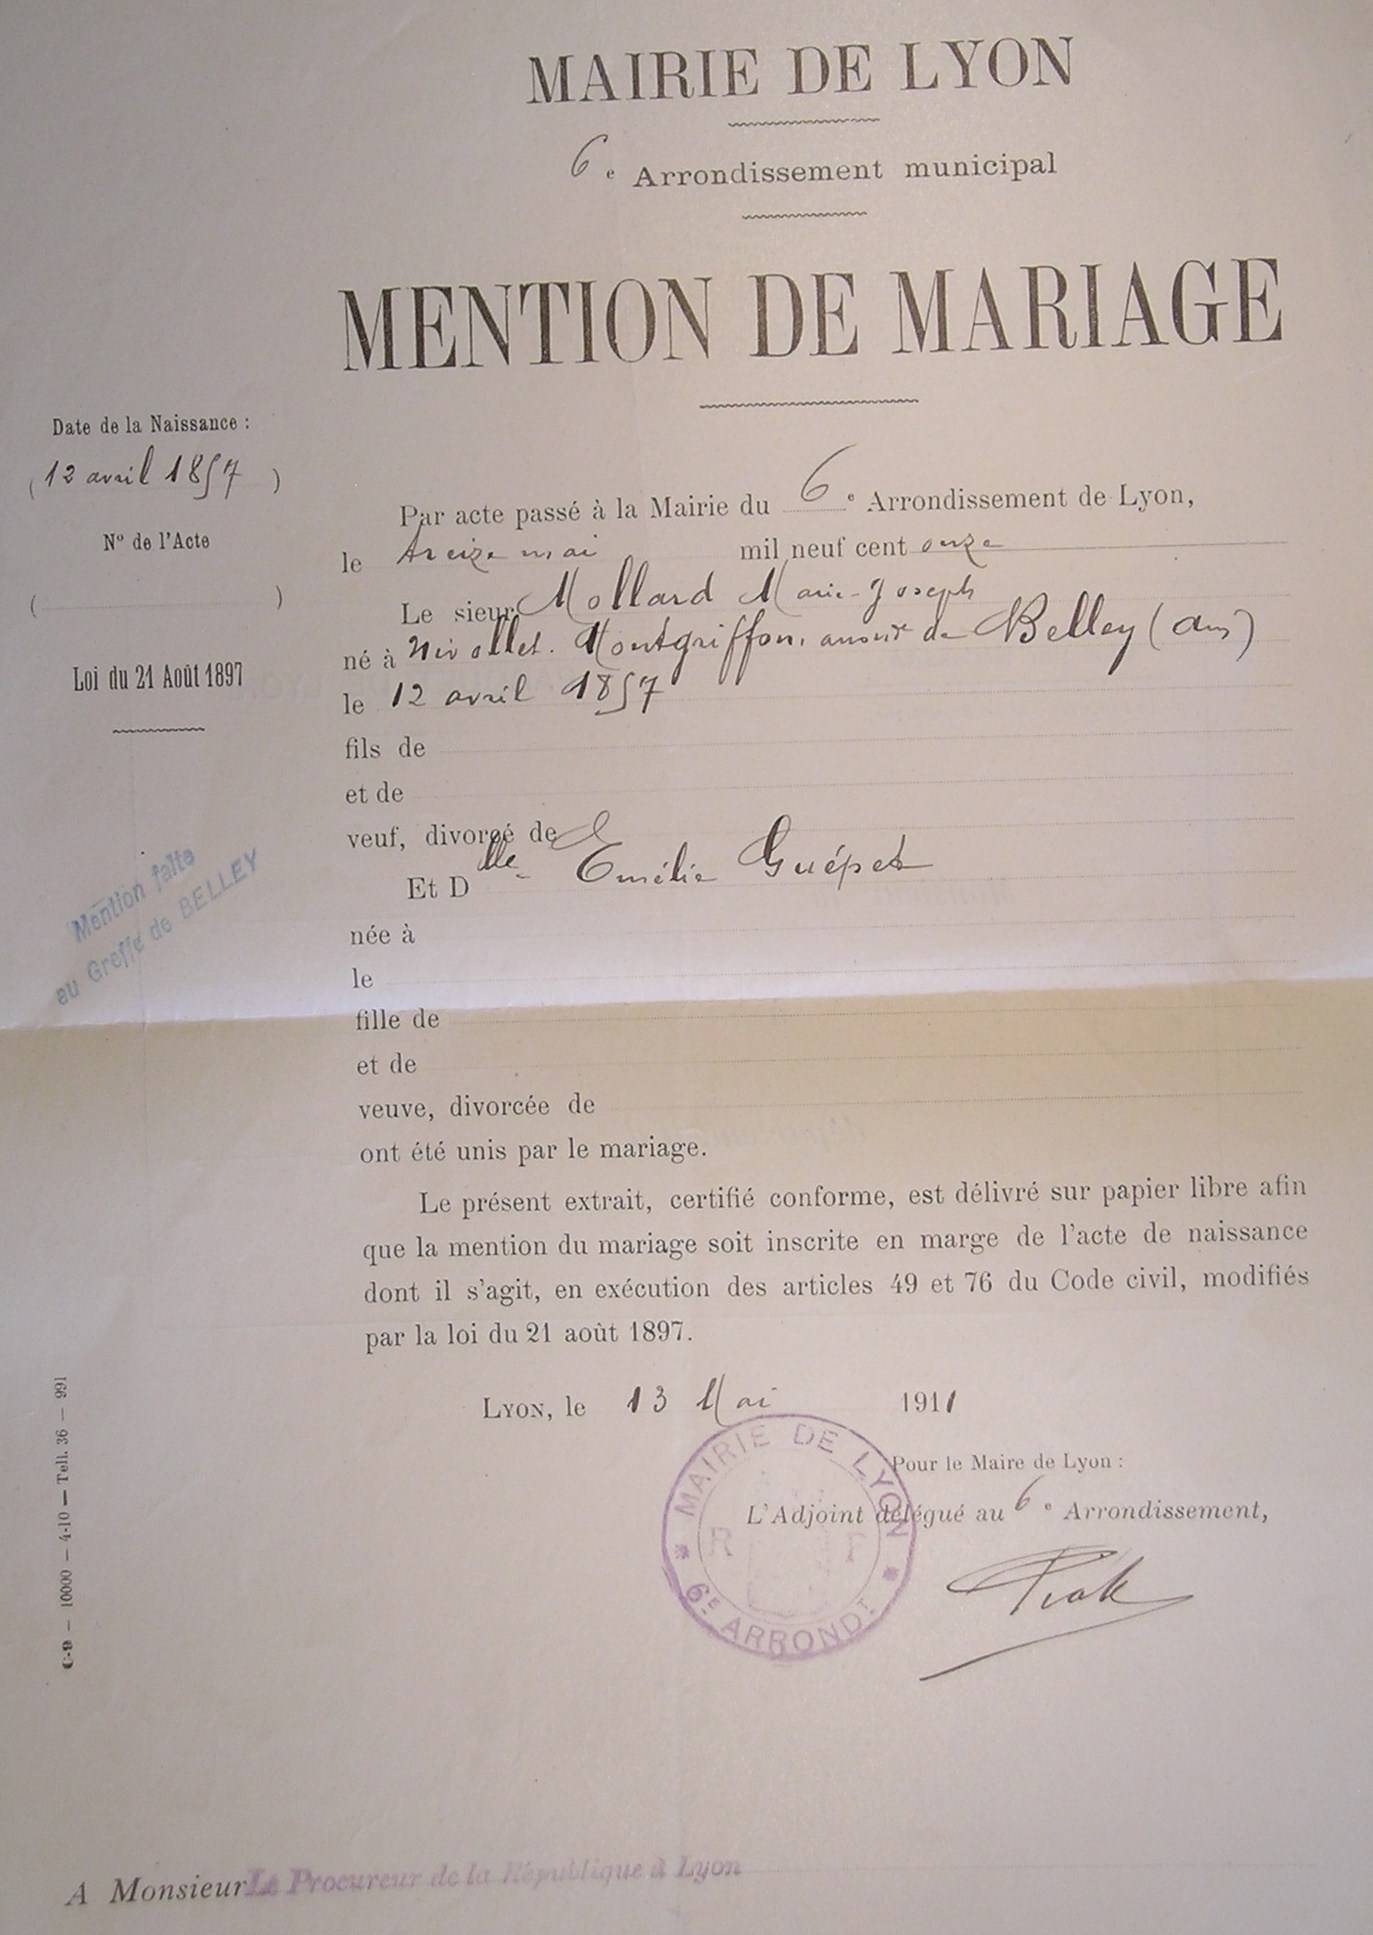 MAIRIE DE LYON
6e Arrondissement municipal
MENTION DE MARIAGE
Date de la Naissance :
(12 avril 1857)
No de l'Acte
( )
Loi du 21 Août 1897
Mention faite
au Greffe de BELLEY
Par acte passé à la Mairie du 6e Arrondissement de Lyon,
le treize mai mil neuf cent onze
Le sieur Mollard Marie-Joseph
né à Nivollet. Montgriffon, de Belley (Ain)
le 12 avril 1857
fils de
et de
veuf, divorcé de
Et Dlle Emélie Guépet
née à
le
fille de
et de
veuve, divorcée de
ont été unis par le mariage.
Le présent extrait, certifié conforme, est délivré sur papier libre afin
que la mention du mariage soit inscrite en marge de l'acte de naissance
dont il s'agit, en exécution des articles 49 et 76 du Code civil, modifiés
par la loi du 21 août 1897.
LYON, le 13 Mai 1911
Pour le Maire de Lyon :
L'Adjoint délégué au 6e Arrondissement,
MAIRIE DE LYON
R F
* 6E ARRONDT *
C-9 — 10000 — 4-10 — Tell. 36 — 991
A Monsieur Le Procureur de la République à Lyon